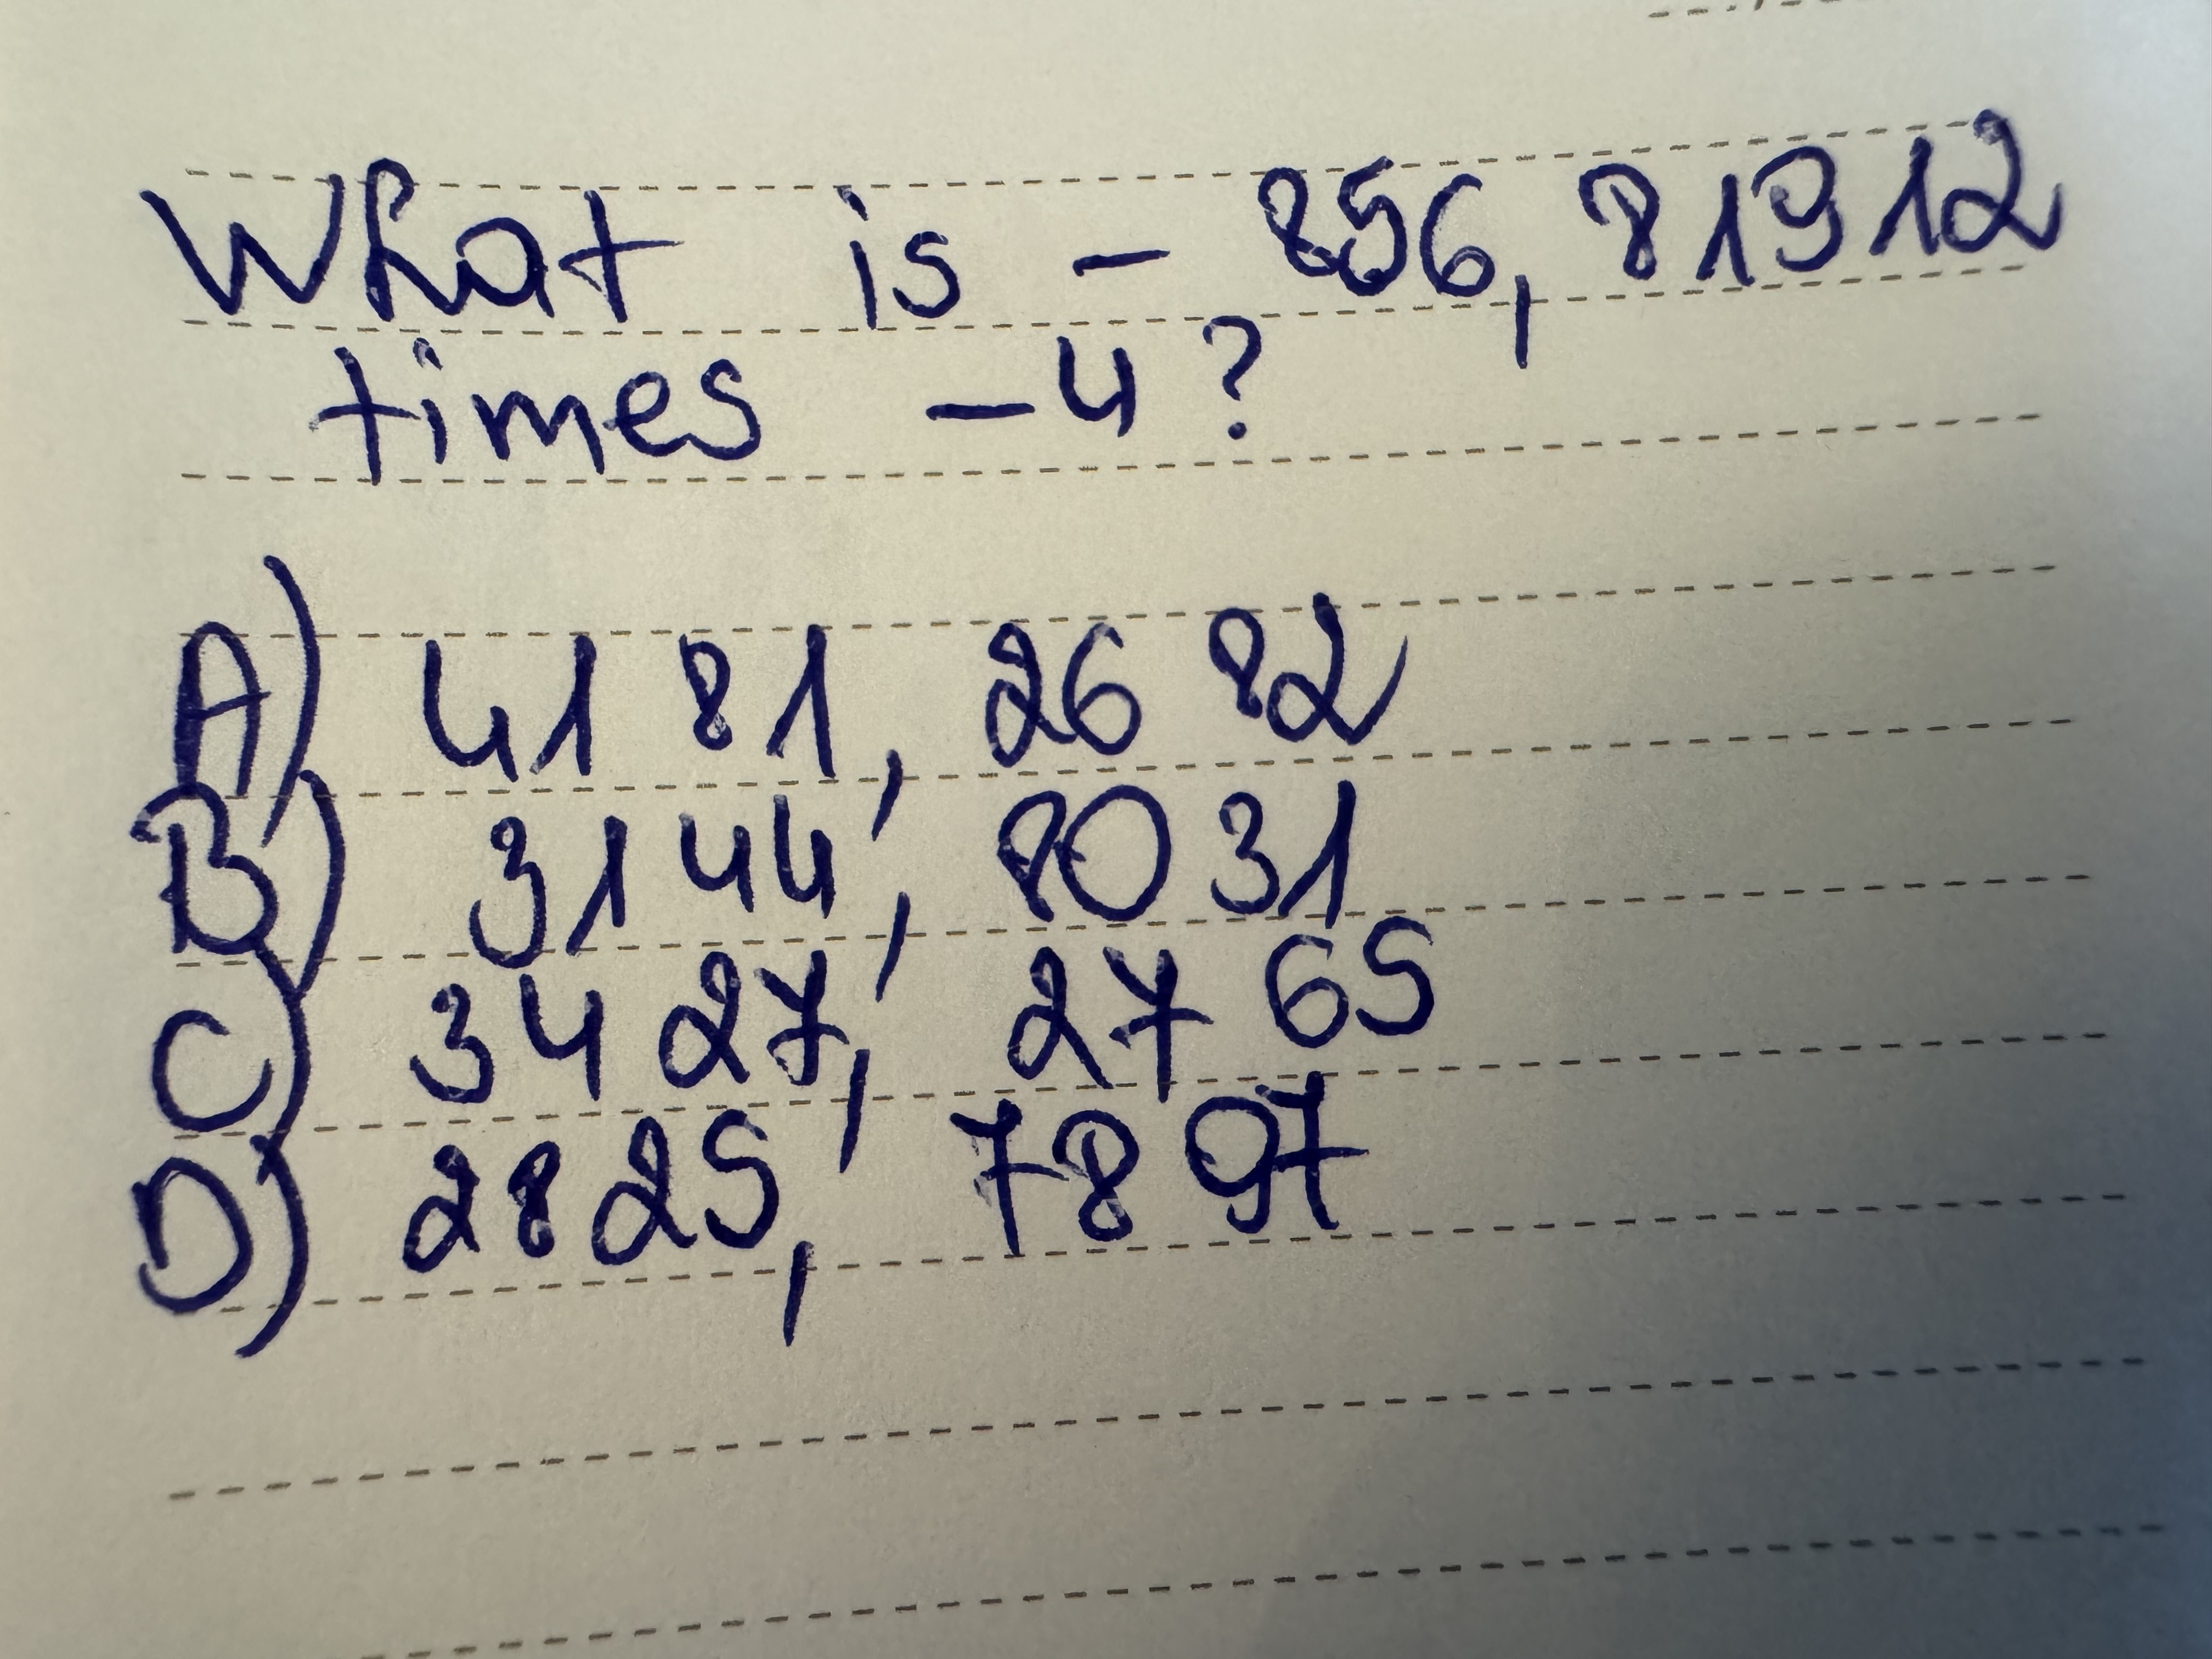 What is - 856, 81912
times -4?
A) 41 81, 26 82
B) 31 44, 80 31
C) 34 27, 27 65
D) 28 25, 78 97